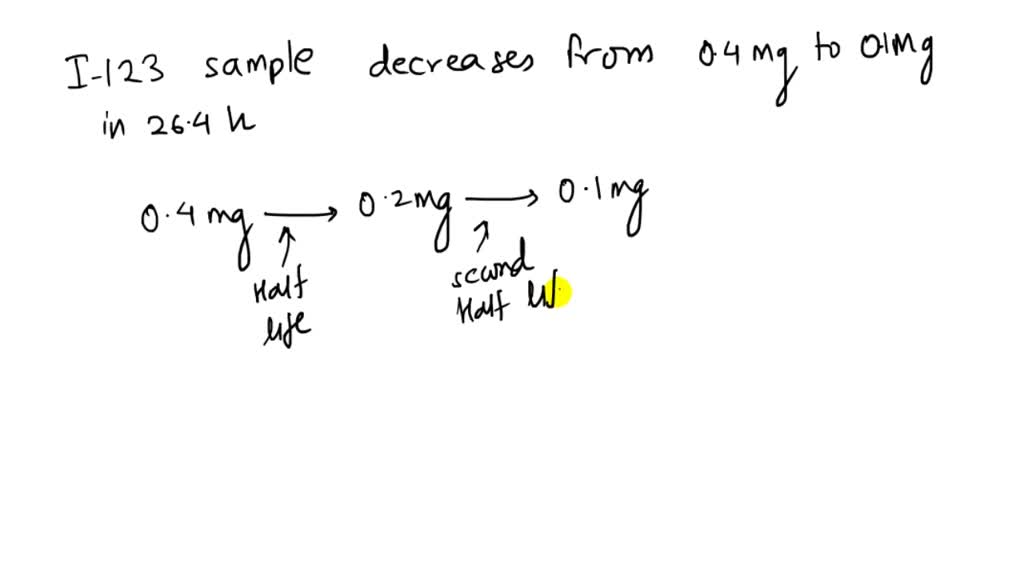 I-123 sample decreases from 0.4 mg to 0.1Mg
in 26.4 h
0.4 mg → 0.2mg → 0.1mg
Half
life
second
Half